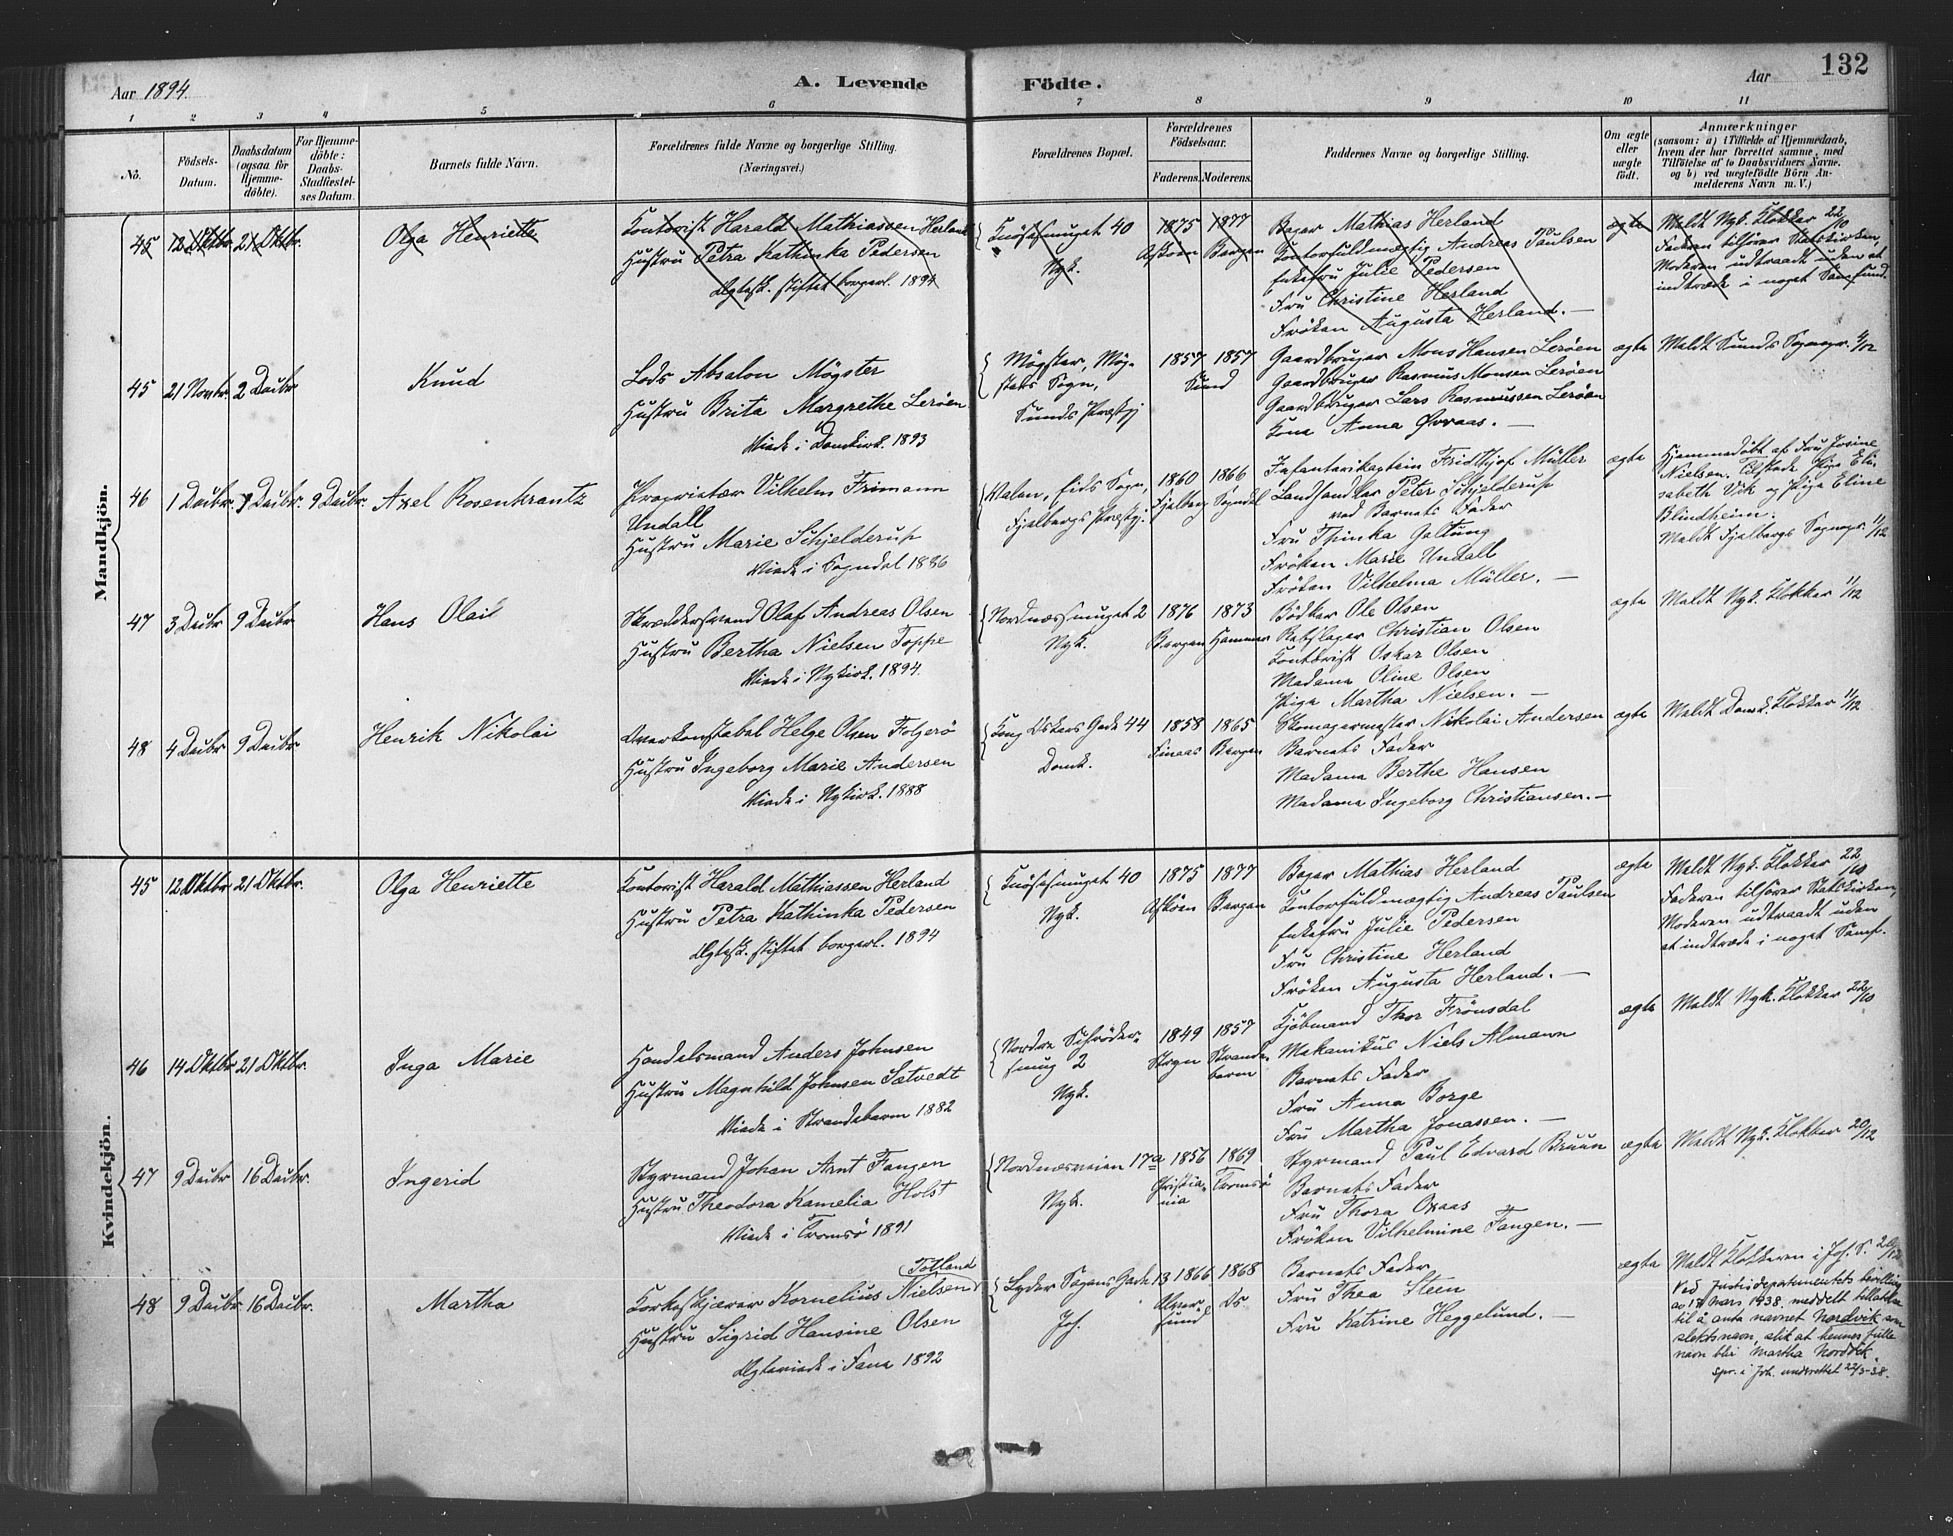 Aar 1894.
A. Levende
Födte.
Aar
132
1 2 3 4 5 6 7 8 9 10 11
No.
Födsels-
Datum.
Daabsdatum
(ogsaa for
Hjemme-
döbte).
For Hjemme-
döbte:
Daabs-
Stadfæstel-
ses Datum.
Barnets fulde Navn.
Forældrenes fulde Navne og borgerlige Stilling.
(Næringsvei.)
Forældrenes Bopæl.
Forældrenes
Födselsaar.
Faderens. Moderens.
Faddernes Navne og borgerlige Stilling.
Om ægte
eller
uægte
födt.
Anmærkninger
(saasom: a) i Tilfælde af Hjemmedaab,
hvem der har forrettet samme, med
Tilföielse af to Daabsvidners Navne,
og b) ved uegtefödte Börn An-
melderens Navn m. V.)
Mandkjön.
45 12 Oktbr. 21 Oktbr. Olga Henriette
Kontorist Harald Mathiassen Herland
Hustru Petra Kathinka Pedersen
Ægtesk. stiftet borgerl. 1894
Knösesmuget 40
Nyk.
1875 1877
Askøen Bergen
Bager Mathias Herland
Kontorfuldmægtig Andreas Paulsen
Enkefru Julie Pedersen
Fru Christine Herland
Fröken Augusta Herland. —
ægte
Meldt Nyk. Klokker 22/10
Faderen tilhører Statskirken,
Moderen udtraadt uden at
indtræde i noget Samfund.
45 21 Novbr. 2 Decbr Knud
Lods Absalon Mögster
Hustru Brita Margrethe Leröen
Viede i Domkirk. 1893
Mögster, Mög-
sters Sogn,
Sunds Præstgj
1857 1857
Sund
Gaardbruger Mons Hansen Leröen
Gaardbruger Rasmus Monsen Leröen
Gaardbruger Lars Rasmussen Leröen
Kone Anna Øvraas. —
ægte
Meldt Sunds Sognepr. 4/12
46 1 Decbr. 9 Decbr. 9 Decbr. Axel Rosenkrantz
Proprietær Vilhelm Frimann
Undall
Hustru Marie Schjelderup
Viede i Sogndal 1886
Valen, Eids Sogn,
Fjelbergs Præstgj.
1860 1866
Fjelberg Sogndal
Infanterikaptein Fridthjof Müller
Landhandler Peter Schjelderup
ved Barnets Fader
Fru Thinka Geltung
Fröken Marie Undall
Fröken Vilhelma Müller. —
ægte
Hjemmedöbt af Fru Josine
Nielsen. Tilstede Pige Eli-
sabeth Vik og Pige Eline
Blindheim.
Meldt Fjelbergs Sognepr. 11/12
47 3 Decbr 9 Decbr Hans Olai
Skræddersvend Olaf Andreas Olsen
Hustru Bertha Nielsen Toppe
Viede i Nykirk. 1894.
Nordnæssmuget 2
Nyk.
1876 1873
Bergen Hammer
Bödker Ole Olsen
Rebslager Christian Olsen
Kontorist Oskar Olsen
Madame Oline Olsen
Pige Martha Nielsen. —
ægte
Meldt Nyk. Klokker 11/12
48 4 Decbr 9 Decbr Henrik Nikolai
Overkonstabel Helge Olsen Folgerö
Hustru Ingeborg Marie Andersen
Viede i Nykirk. 1888
Kong Oskars Gade 44
Domk.
1858 1865
Finaas Bergen
Skomagermester Nikolai Andersen
Barnets Fader
Madame Berthe Hansen
Madame Ingeborg Christiansen. —
ægte
Meldt Domk. Klokker 11/12
Kvindekjön.
45 12 Oktbr 21 Oktbr. Olga Henriette
Kontorist Harald Mathiassen Herland
Hustru Petra Kathinka Pedersen
Ægtesk. stiftet borgerl. 1894
Knösesmuget 40
Nyk.
1875 1877
Askøen Bergen
Bager Mathias Herland
Kontorfuldmægtig Andreas Paulsen
Enkefru Julie Pedersen
Fru Christine Herland
Fröken Augusta Herland. —
ægte
Meldt Nyk. Klokker 22/10
Faderen tilhører Statskirken,
Moderen udtraadt uden
at indtræde i noget Samf.
46 14 Oktbr 21 Oktbr. Inga Marie
Handelsmand Anders Johnsen
Hustru Magnhild Johnsen Sætvedt
Viede i Strandebarm 1882
Nordre Schröder-
smug 2
Nyk.
1849 1857
Strande-
barm
Kjöbmand Thor Frönsdal
Mekanikus Niels Almann
Barnets Fader
Fru Anna Borge
Fru Martha Jonassen. —
ægte
Meldt Nyk. Klokker 22/10
47 9 Decbr 16 Decbr. Ingerid
Styrmand Johan Arnt Fangen
Hustru Theodora Kamelia Holst
Viede i Tromsö 1891
Nordnæsveien 17a
Nyk.
1856 1869
Christia-
nia Tromsö
Styrmand Paul Edvard Bruun
Barnets Fader
Fru Thora Oxaas
Fröken Vilhelmine Fangen. —
ægte
Meldt Nyk. Klokker 20/12
48 9 Decbr 16 Decbr. Martha
Totland
Korkeskjærer Kornelius Nielsen
Hustru Sigrid Hansine Olsen
Ægteviede i Fana 1892
Lyder Sagens Gade 13
Joh.
1866 1868
Alver-
sund Do
Barnets Fader
Fru Thea Steen
Fru Katrine Heggelund. —
ægte
Meldt Klokkeren i Joh. S.
Ved Justisdepartementets bevilling
av 18 mars 1938 meddelt tillatelse
til å anta navnet Nordvik som
slektsnavn, slik at hennes fulle
navn blir Martha Nordvik.
spr. i Joh. underrettet 22/3-38.